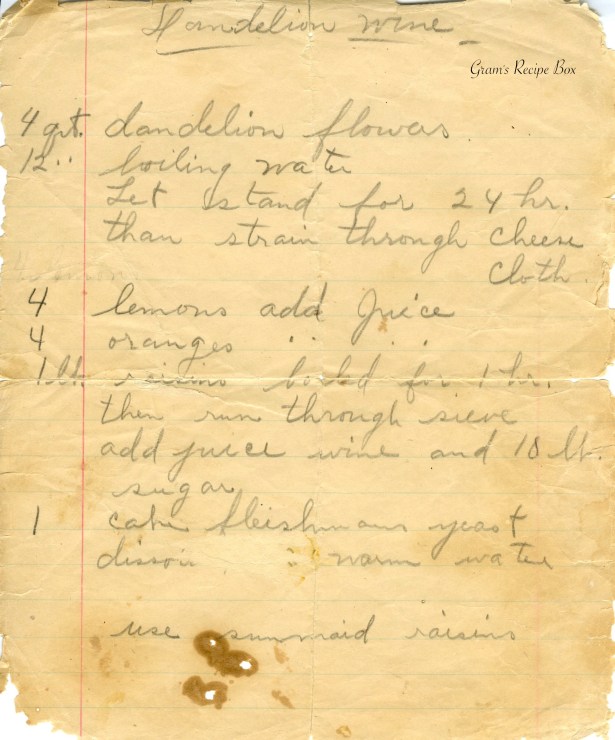 Dandelion Wine
Gram's Recipe Box
4 qt. dandelion flowers
12 " boiling water
Let stand for 24 hr.
than strain through cheese
cloth.
4 lemons add Juice
4 oranges " " "
1 lb. raisins boiled for 1 hr.
then run through sieve
add juice wine and 10 lb.
sugar
1 cake fleishmans yeast
" warm water
use sunmaid raisins